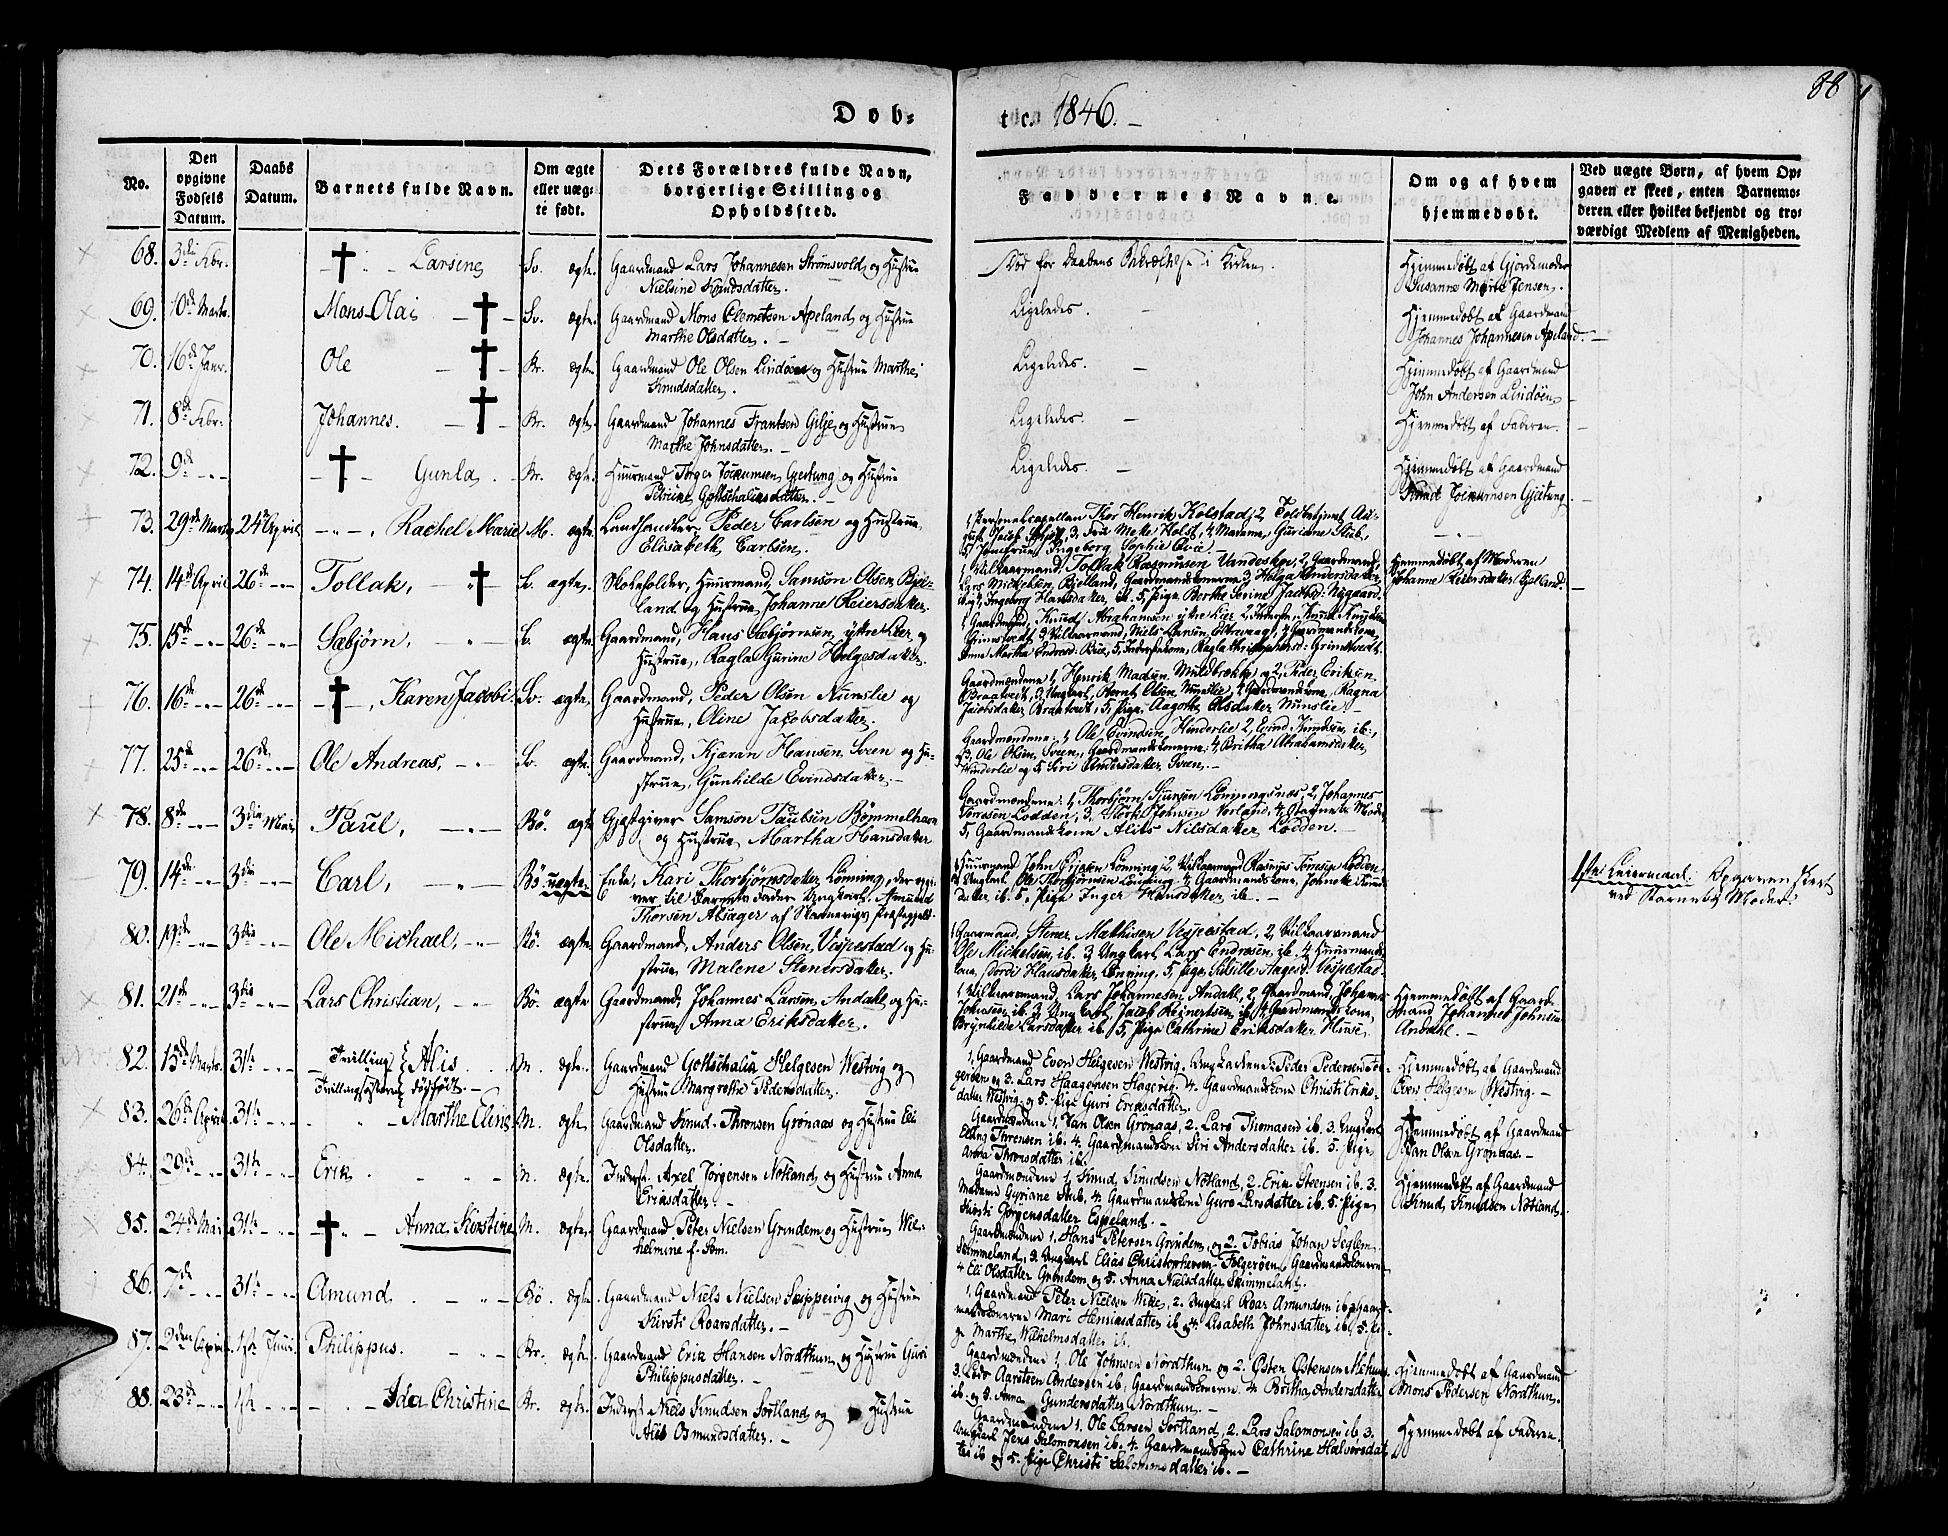 88
Døb- te. 1846.
No.
Den opgivne Fødsels Datum.
Daabs Datum.
Barnets fulde Navn.
Om ægte eller uægte født.
Dets Forældres fulde Navn, borgerlige Stilling og Opholdssted.
Faddernes Navne.
Om og af hvem hjemmedøbt.
Ved uægte Børn, af hvem Opgaven er skeet, enten Barnemoderen eller hvilket bekjendt og troværdigt Medlem af Menigheden.
68. 3die Febr. Larsine Sv. ægte. Gaardmand Lars Johannesen Strømsvold og Hustrue
Nielsine Knudsdatter.
Død før Daabens Bekræftelse i Kirken.
Hjemmedøbt af Gjordemoder
Susanne Marie Jensen.
69. 10de Marts. Mons Olai Sv. ægte. Gaardmand Mons Clemetsen Apeland og Hustrue
Marthe Olsdatter.
Ligeledes.
Hjemmedøbt af Gaardmand
Johannes Johannesen Apeland.
70. 16de Janr. Ole Br. ægte. Gaardmand Ole Olsen Lindøen og Hustrue Marthe
Knudsdatter.
Ligeledes.
Hjemmedøbt af Gaardmand
John Andersen Lindøen
71. 8de Febr. Johannes. Br. ægte. Gaardmand Johannes Frantsen Gilje og Hustrue
Marthe Johnsdatter.
Ligeledes.
Hjemmedøbt af Faderen.
72. 9de Gunla Br. ægte. Huusmand Torger Gjerting og Hustrue
Gottschalksdatter.
Ligeledes.
Hjemmedøbt af Gaardmand
Knud Gjerting.
73. 29de Marts 24de April Rachel Marie M. ægte. Landhandler, Peder Carlsen og Hustrue,
Elisabeth Carlsen.
1, Personelcapellan Thor Henrik Kolstad, 2, Toldbetjent
3, Fru Mette Holst, 4, Madame Gurianne Stub,
5, Jomfrue Ingeborg Sophie
74. 14de April 26de Tollak, Sv. ægte, Skoleholder, Huusmand, Samson Olsen, Bjel-
land og Hustrue, Johanne Reiersdatter.
1, Vilkaarmand, Tollak Rasmussen Vandeskog, 2, Gaardmand,
Lars Mickelsen, Bjelland, Gaardmandskonerne 3, Helga Andersdatter
4, Ingeborg Hansdatter, ib. 5, Pige Berthe Serine Nygaard.
Hjemmedøbt af Moderen
Johanne Reiersdatter Bjelland.
75. 15de 26de Sæbjørn, Sv. ægte. Gaardmand, Hans Sæbjørnsen, yttre Lier, og
Hustrue, Ragla Gjurine Helgesdatter.
1, Gaardmand, Knud Abrahamsen yttre Lier, 2, Inderst, Knud Knudsen
Grimstvedt, 3, Vilkaarmand, Niels Larsen, 4, Gaardmandskone,
Anna Martha 5, Inderstkone, Ragla Grimstvedt.
76. 16de 26de Karen Jacobi. Sv. ægte. Gaardmand, Peder Olsen Nunslie og
Hustrue, Oline Jacobsdatter.
Gaardmændene 1, Henrik Madsen Mildbrække, og 2, Peder Eriksen,
Braatvedt, 3, Ungkarl, Bernt Olsen, Nunslie, 4, Gaardmandskone, Ragna
Jacobsdatter Braatvedt, 5, Pige, Aagothe Olsdatter Nunslie.
77. 25de 26de Ole Andreas, Sv. ægte. Gaardmand, Kjæran Hansen, Sveen og Hu-
strue, Gunhilde Evindsdatter.
Gaardmændene: 1, Ole Evindsen Hinderlie 2, Evind Knudsen, ib:,
3, Ole Olsen, Sveen, Gaardmandskonerne: 4, Britha Abrahamsdatter,
Hinderlie og 5, Siri Andersdatter, Sveen.
78. 8de 3die Mai Paul, Bø. ægte Gjæstgiver Samson Paulsen Bømmelhavn
og Hustrue, Martha Hansdatter
Gaardmændene: 1, Thorbjørn Sjursen Lønningsnæs, 2, Johannes
Tørresen Lodden, 3, Størk Johnsen Vorland,
5, Gaardmandskone Alits Nilsdatter, Lodden.
79. 14de 3die Carl, Bø. uægte. Enke, Kari Thorbjørnsdatter, Lønning, der opgi-
ver til Barnets Fader Ungkarl, Asmund
Thorsen Alsager af Skaanevigs Præstegjeld.
1, Huusmand John Lønning, 2, Vilkaarmand Rasmus Lodden,
3, Ungkarl, Ole Thorbjørnsen Lønning, 4, Gaardmandskone, Johanna Knuds-
datter ib. 5, Pige Inger Hansdatter ib.
1ste Leiermaal. Opgaven skeet
ved Barnets Moder.
80. 19de 3die Ole Michael, Bø. ægte. Gaardmand, Anders Olsen, Vespestad og Hu-
strue, Malene Stenersdatter.
1, Gaardmand, Stener Mathisen Vespestad, 2, Vilkaarmand
Ole Mickelsen, ib. 3, Ungkarl, Lars Endresen, ib. 4, Huusmands-
kone, Hansdatter, Lønning, 5, Pige, Sibille Vespestad.
81. 21de 3die Lars Christian, Bø. ægte Gaardmand, Johannes Larsen, Andahl og Hu-
strue, Anna Eriksdatter.
1, Vilkaarmand, Lars Johannesen Andahl, 2, Gaardmand, Johannes
Johnsen ib. 3, Ungkarl, Jacob Reinertsen ib. 4, Gaardmandskone,
Brynhilde Larsdatter ib. 5, Pige Cathrine Eriksdatter Hiuse.
Hjemmedøbt af Gaard-
mand Johannes Johnsen
Andahl.
82. 15de Marts. 31te Tvilling Alis M. ægte. Gaardmand Gottschalk Helgesen Westvig og
Tvillingsøsteren dødfødt. Hustrue Margrethe Pedersdatter.
1, Gaardmand Even Helgesen Westvig. Ungkarlene: Peder Pedersen
og 3. Lars Haagensen Hagevig. 4. Gaardmandskone Christi Eriks-
datter Westvig og 5. Pige Guri Eriksdatter.
Hjemmedøbt af Gaardmand
Even Helgesen Westvig.
83. 26de April 31te Marthe Eline M. ægte. Gaardmand Knud Thronsen Grønaas og Hustrue Eli
Olsdatter.
Gaardmændene 1, Jan Olsen Grønaas, 2. Lars Thomasen ib. 3. Ungkarl
Elling Thronsen ib. 4. Gaardmandskone Siri Andersdatter ib. 5. Pige
Anna Thronsdatter ib.
Hjemmedøbt af Gaardmand
Jan Olsen Grønaas.
84. 29de 31te Erik M. ægte. Inderst Axel Jørgensen Nøtland og Hustrue Anna
Eriksdatter.
Gaardmændene 1, Knud Knudsen Nøtland, 2. Erik Steensen ib. 3.
Madame Gyriane Stub. 4. Gaardmandskone Guro Larsdatter ib. 5. Pige
Kirsti Jørgensdatter Espeland.
Hjemmedøbt af Gaardmand
Knud Knudsen Nøtland.
85. 24de Mai 31te Anna Kirstine M. ægte. Gaardmand Peter Nielsen Grindem og Hustrue Wil-
helmine f. Som.
Gaardmændene 1, Hans Petersen Grindem, og 2. Tobias Johan Seglem
Skimmeland, 3. Ungkarl Elias Christophersen Folgerøen, Gaardmandskonerne
4 Eli Olsdatter Grindem og 5. Anna Nielsdatter Skimmeland.
86. 7de 31te Amund. Bø. ægte. Gaardmand Niels Nielsen Skippervig og Hustrue
Kirsti Roarsdatter.
1. Gaardmand Peter Nielsen Wike, 2. Ungkarl Roar Amundsen ib. Gaard-
mandskonerne Mari Henriksdatter ib. 4. Lisabeth Johnsdatter ib. 5. Pi-
ge Marthe Wilhelmsdatter ib.
87. 2den April 1ste Juni. Philippus. Br. ægte. Gaardmand Erik Hansen Nordthun og Hustrue Guri
Philippusdatter.
Gaardmændene 1, Ole Johnsen Nordthun og 2. Østen Østensen
3. Andersen ib, Gaardmandskonerne 4. Britha Andersdatter
ib. og 5. Anna Gundersdatter Nordthun.
Hjemmedøbt af Gaardmand
Mons Pedersen Nordthun.
88. 23de 1ste Ida Christine Br. ægte. Inderst Niels Knudsen Sortland og Hustrue
Alis Osmundsdatter.
Gaardmændene 1. Ole Larsen Sortland, 2. Lars Salomonsen ib 3.
Ungkarl Jens Salomonsen ib. 4. Gaardmandskone Cathrine Halvorsdat-
ter ib og 5. Pige Christi Salomonsdatter ib.
Hjemmedøbt af Faderen.